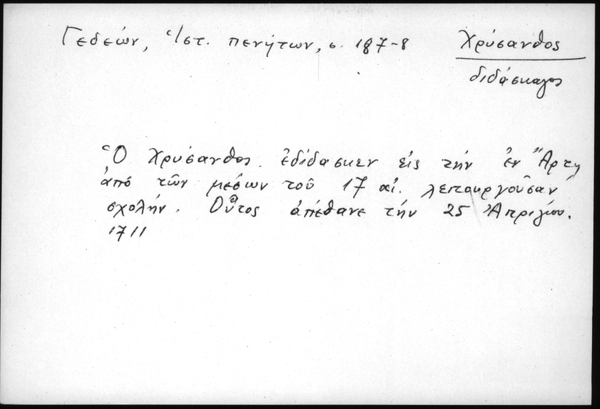 Γεδεών, Ἱστ. πενήτων, σ. 187-8
Χρύσανθος
διδάσκαλος
Ὁ Χρύσανθος ἐδίδασκεν εἰς τὴν ἐν Ἄρτῃ
ἀπὸ τῶν μέσων τοῦ 17 αἰ. λειτουργοῦσαν
σχολήν. Οὗτος ἀπέθανε τὴν 25 Ἀπριλίου
1711